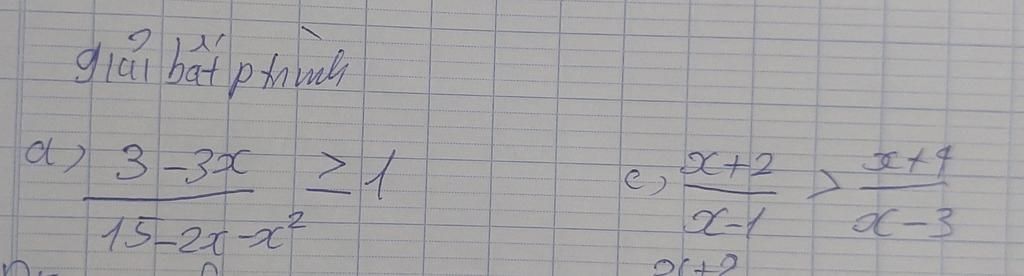 giải bất p trình
a) (3-3x)/(15-2x-x²) ≥ 1
c) (x+2)/(x-1) > (x+4)/(x-3)
x+2